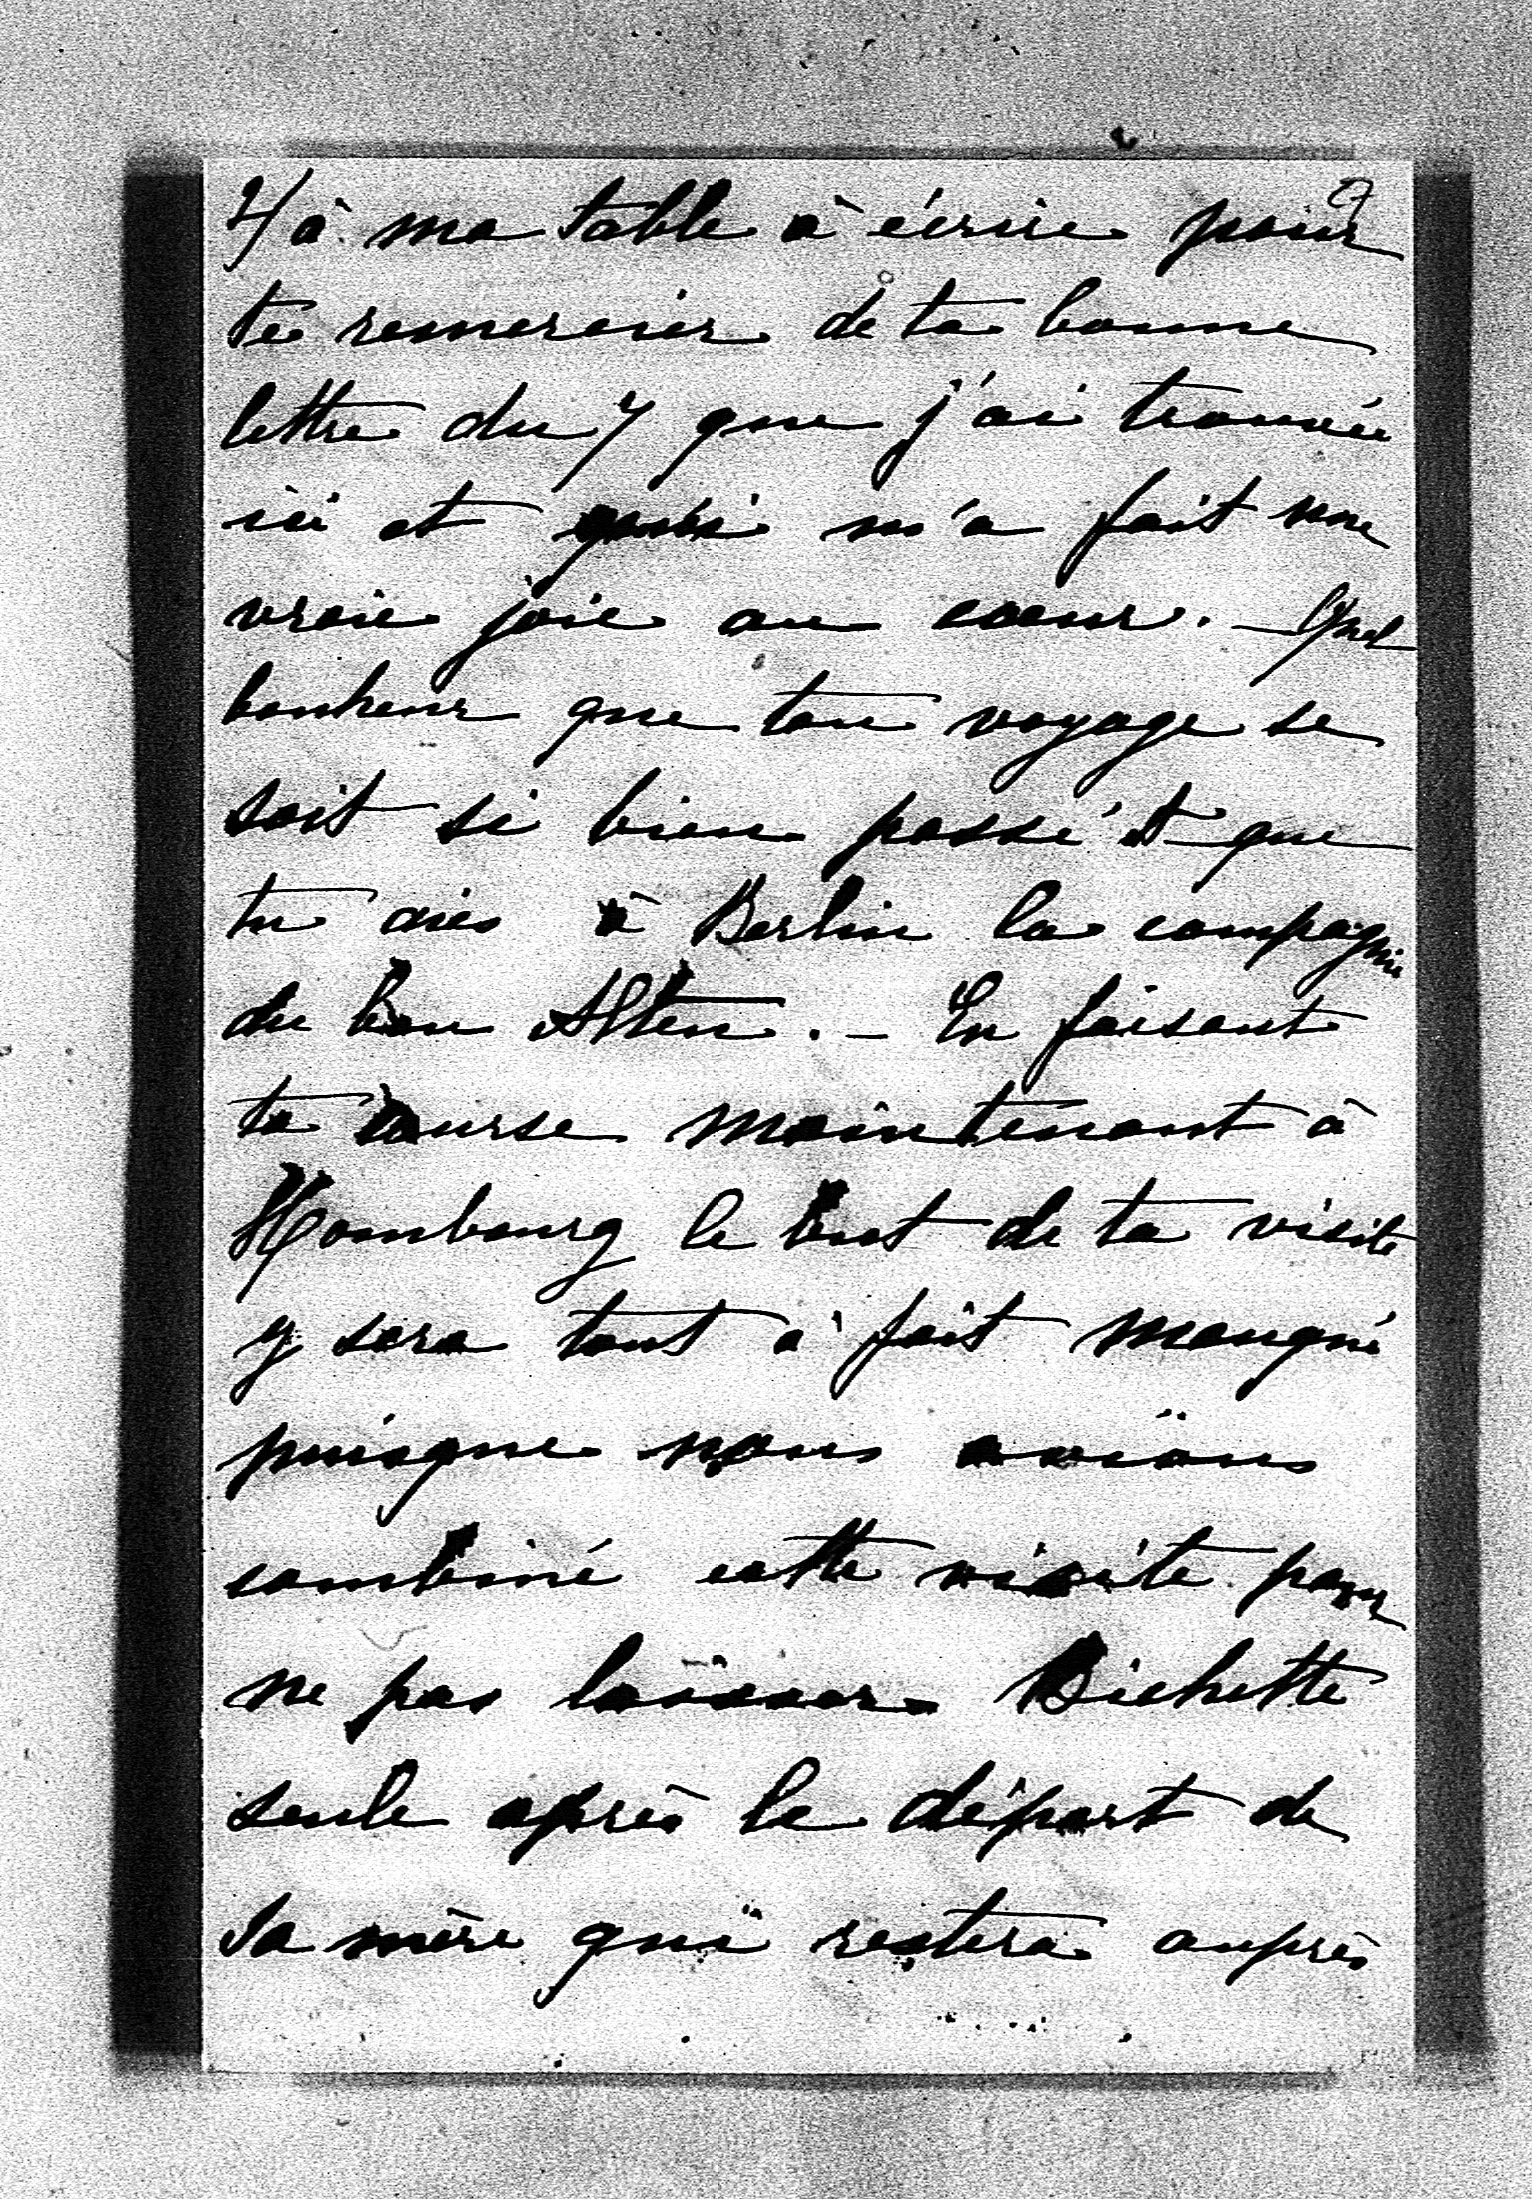 4/ à ma table à écrire pour
te remercier de ta bonne
lettre du 7 que j'ai trouvée
ici et qui m'a fait une
vraie joie au coeur. – Quel
bonheur que ton voyage se
soit si bien passé et que
tu aies à Berlin la compagnie
du bon Alten. – En faisant
ta course maintenant à
Hombourg le but de ta visite
y sera tout à fait manqué
puisque nous avions
combiné cette visite pour
ne pas laisser Bichette
seule après le départ de
sa mère qui restera auprès